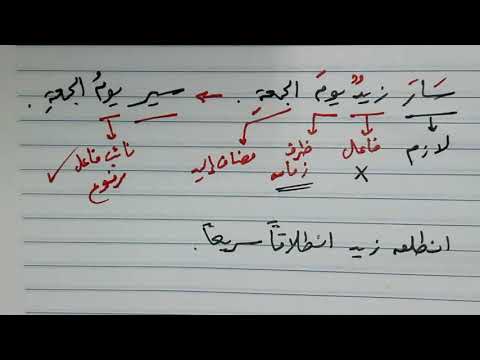 سَارَ زيدٌ يومَ الجمعةِ . ← سير يومُ الجمعةِ .
لازم فاعل ظرف زمان مضاف إليه نائب فاعل مرفوع
انطلق زيد انطلاقاً سريعاً .